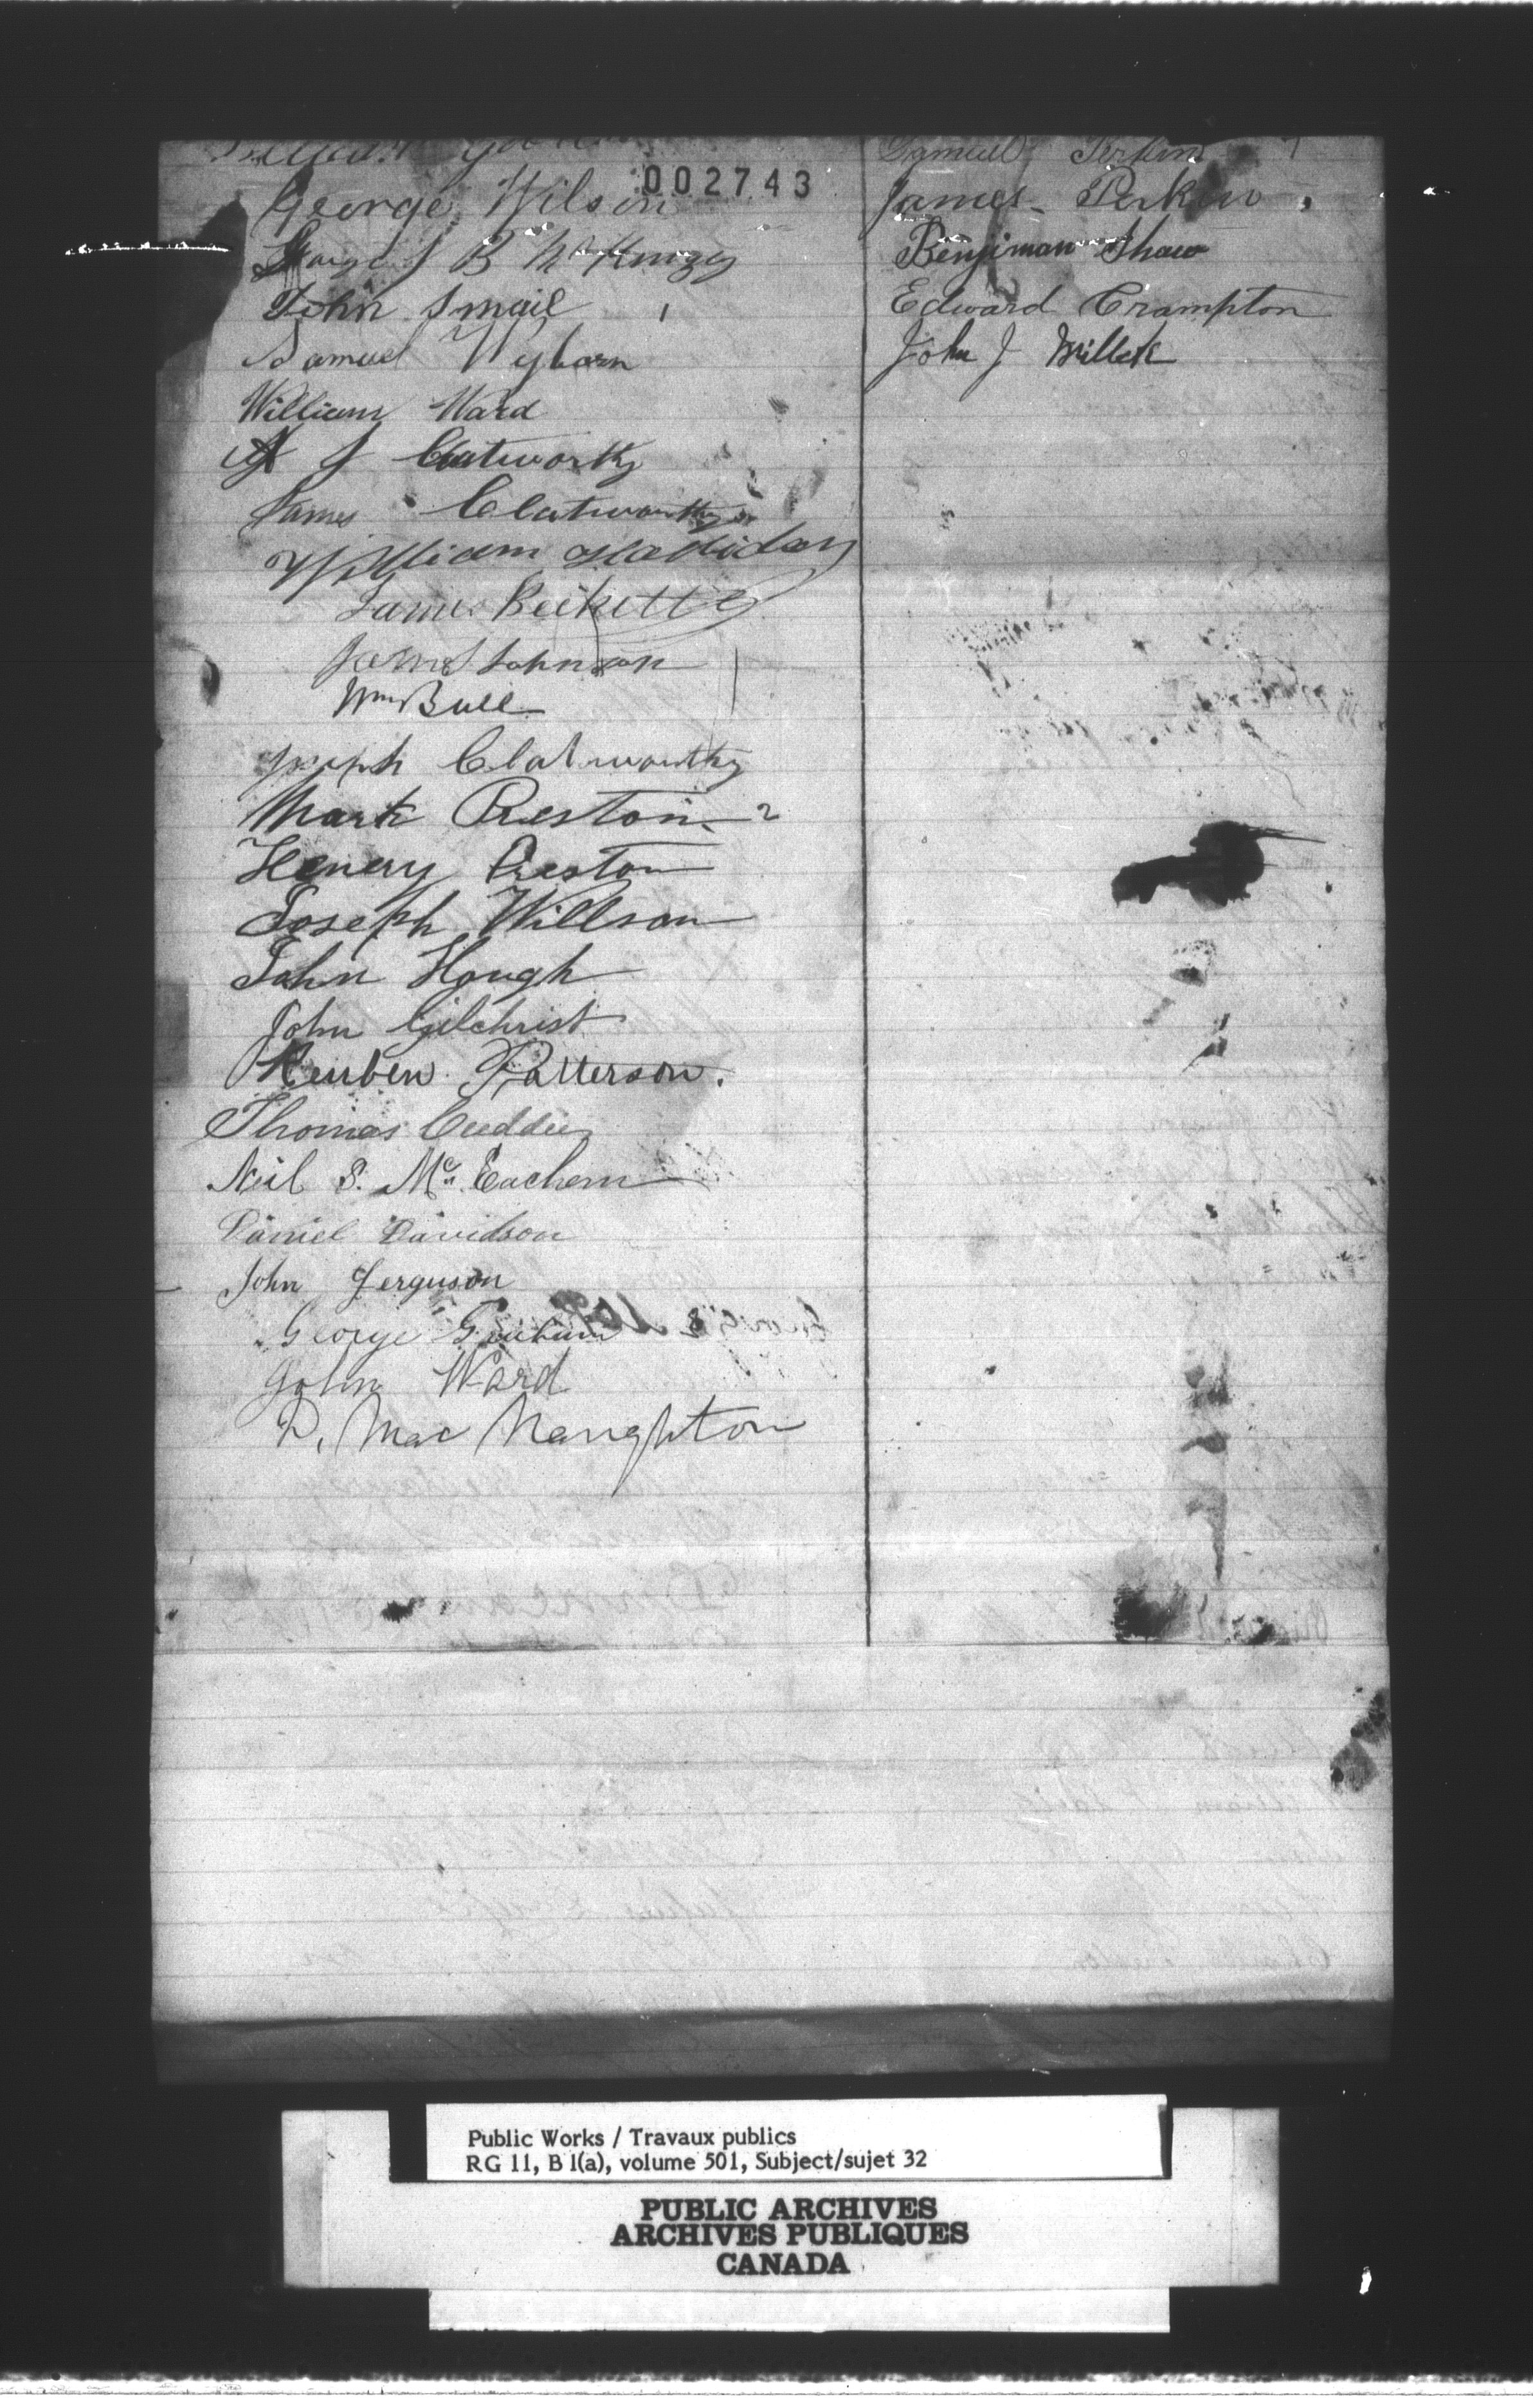 002743
George Wilson
John Smail
Samuel Wyborn
William Ward
A J Clatworthy
James Clatworthy
William Halliday
James Beckett
James Johnson
Wm Bull
Joseph Clatworthy
Mark Preston
Henery Preston
Joseph Willson
John Hough
John Gilchrist
Reuben Patterson.
Thomas Cuddie
Neil S. Mc Eachern
Daniel Davidson
John Ferguson
George Graham
John Ward
D. Mac Naughton
Samuel Perkins
James Perkins
Benjiman Shaw
Edward Crampton
John J
Public Works / Travaux publics
RG 11, B 1(a), volume 501, Subject/sujet 32
PUBLIC ARCHIVES
ARCHIVES PUBLIQUES
CANADA